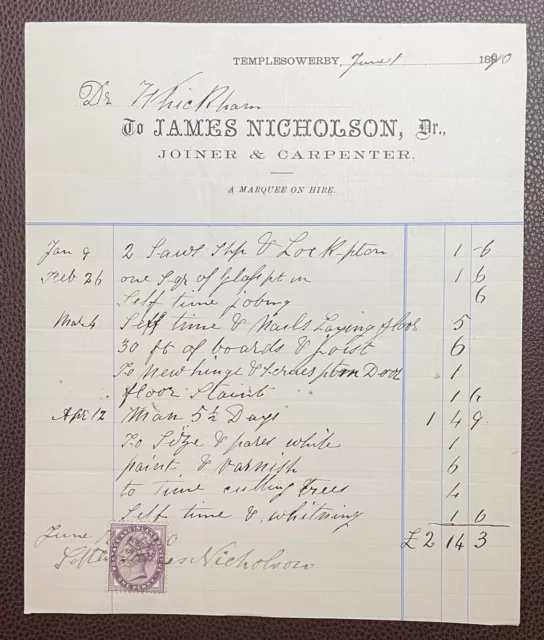 TEMPLESOWERBY, June 1 1890
Dr Whickham
To JAMES NICHOLSON, Dr.,
JOINER & CARPENTER.
A MARQUEE ON HIRE.
Jan 9 2 Saws & Lock pt on 1 6
Feb 26 one Sqr of Glass pt in 1 6
Self time 6
Mar 4 Self time & Nails Laying floor 5
30 ft of boards & 6
To New hinge & Screws pt on Door 1
floor 1 6
Apr 12 Man 5½ Days 1 4 9
To Size & white 1
paint & varnish 6
to time cutting trees 4
Self time & whitning 1 6
£2 14 3
June
Nicholson